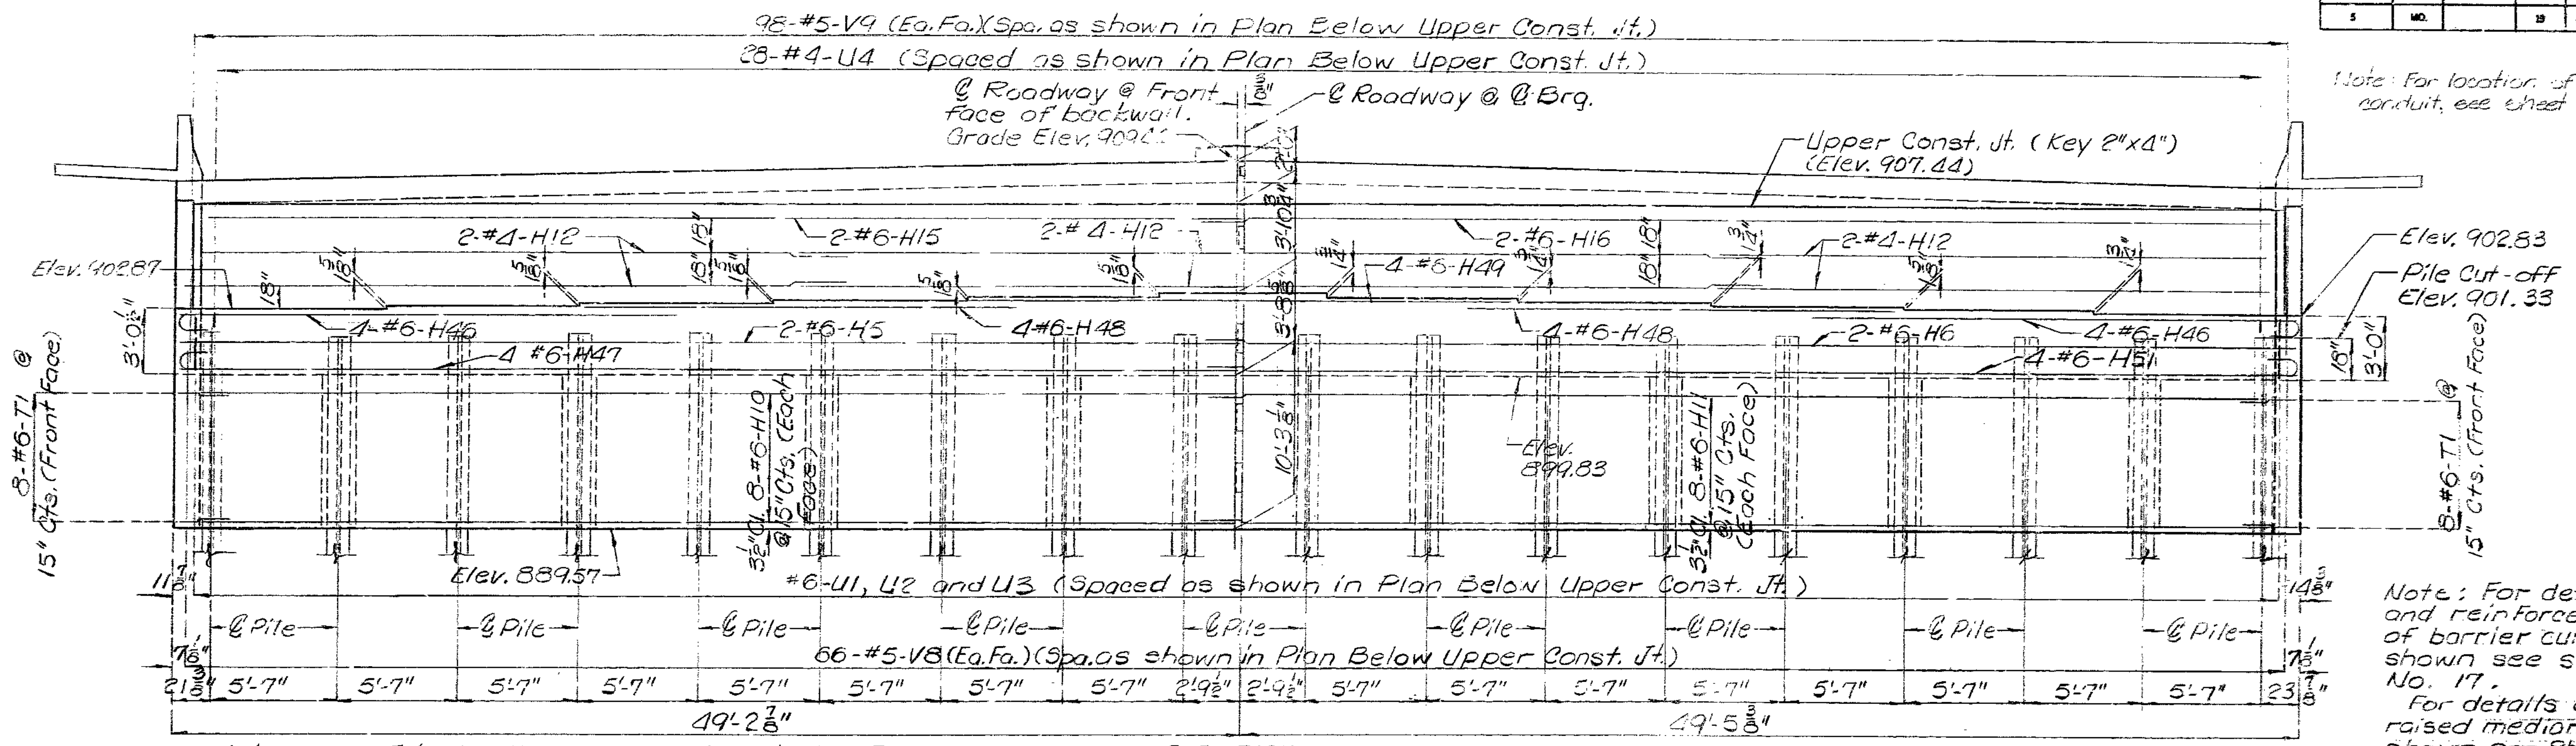 5 MO. 19
98-#5-V9 (Ea.Fa.)(Spa. as shown in Plan Below Upper Const. Jt.)
28-#4-U4 (Spaced as shown in Plan Below Upper Const. Jt.)
℄ Roadway @ Front
face of backwall.
Grade Elev. 909.
℄ Roadway @ ℄ Brg.
Note: For location of
conduit, see sheet
Upper Const. Jt. (Key 2"x4")
(Elev. 907.44)
2'-0"
3'-10¾"
2-#4-H12
18" 18"
2-#6-H15
2-#4-H12
2-#6-H16
18" 18"
2-#4-H12
Elev. 902.83
Elev. 902.87
18"
4-#6-H49
Pile Cut-off
Elev. 901.33
3'-0½"
4-#6-H46
2-#6-H5
4-#6-H48
3'-8⅝"
4-#6-H48
2-#6-H6
4-#6-H46
4 #6-H47
4-#6-H51
18"
3'-0"
8-#6-T1 @
15" Cts. (Front Face)
3½" Cl. 8-#6-H10
@ 15" Cts. (Each
Face)
10'-3⅛"
Elev.
899.83
3½" Cl. 8-#6-H11
@ 15" Cts.
(Each Face)
8-#6-T1 @
15" Cts. (Front Face)
Elev. 889.57
11⅞"
#6-U1, U2 and U3 (Spaced as shown in Plan Below Upper Const. Jt.)
14⅜"
℄ Pile ℄ Pile ℄ Pile ℄ Pile ℄ Pile ℄ Pile ℄ Pile ℄ Pile ℄ Pile
7⅛"
66-#5-V8 (Ea.Fa.)(Spa. as shown in Plan Below Upper Const. Jt.)
7⅛"
21⅜" 5'-7" 5'-7" 5'-7" 5'-7" 5'-7" 5'-7" 5'-7" 5'-7" 2'-9½" 2'-9½" 5'-7" 5'-7" 5'-7" 5'-7" 5'-7" 5'-7" 5'-7" 5'-7" 23⅞"
49'-2⅞"
49'-5⅜"
Note: For de
and reinforce
of barrier cu
shown see s
No. 17.
For details
raised median